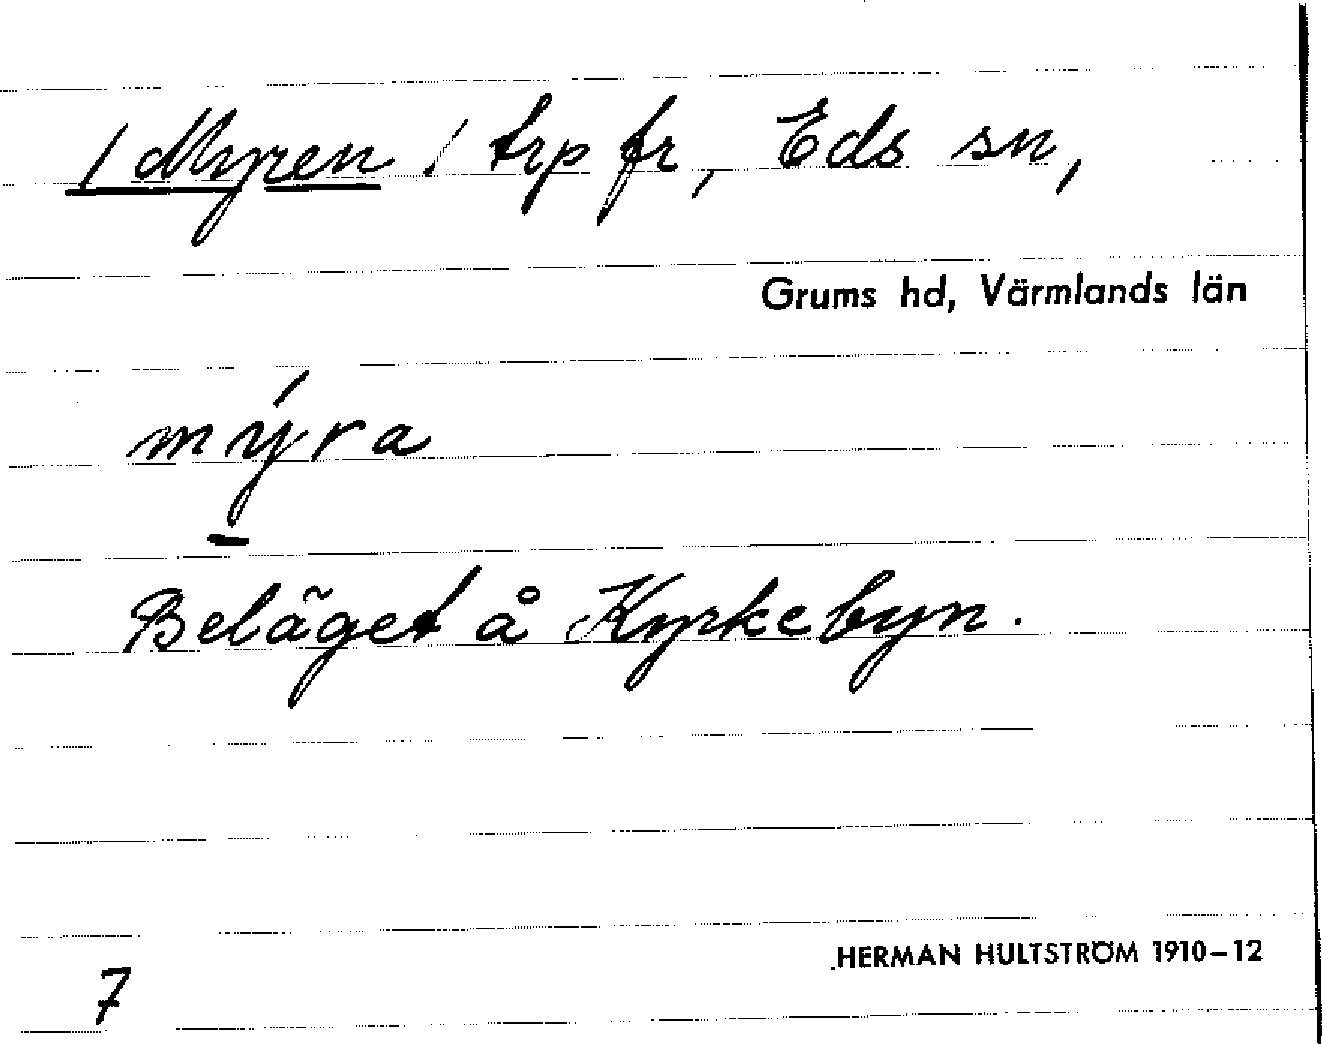 / Myren / trp fr, Eds sn,
Grums hd, Värmlands län
mýra
Beläget å Kyrkebyn.
HERMAN HULTSTRÖM 1910–12
7